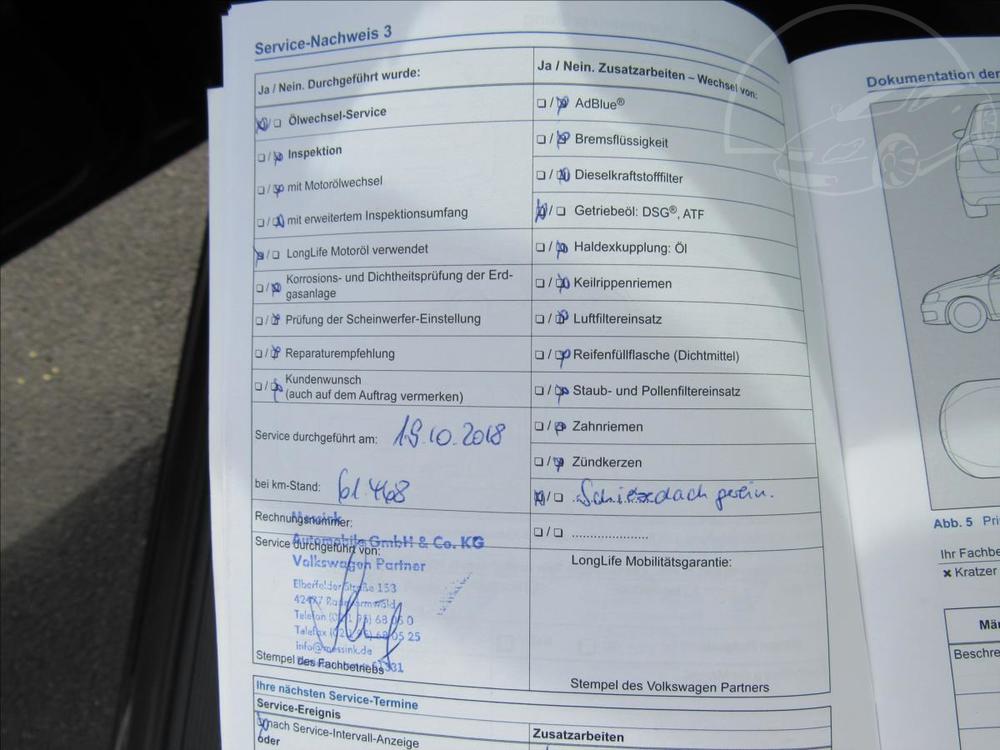 Service-Nachweis 3
Ja / Nein. Durchgeführt wurde:
Ölwechsel-Service
Inspektion
mit Motorölwechsel
mit erweitertem Inspektionsumfang
LongLife Motoröl verwendet
Korrosions- und Dichtheitsprüfung der Erd-
gasanlage
Prüfung der Scheinwerfer-Einstellung
Reparaturempfehlung
Kundenwunsch
(auch auf dem Auftrag vermerken)
Service durchgeführt am: 19.10.2018
bei km-Stand: 61.468
Rechnungsnummer:
Automobile GmbH & Co. KG
Service durchgeführt von:
Volkswagen Partner
Elberfelder Straße 153
Stempel des Fachbetriebs
Ja / Nein. Zusatzarbeiten – Wechsel von:
AdBlue®
Bremsflüssigkeit
Dieselkraftstofffilter
Getriebeöl: DSG®, ATF
Haldexkupplung: Öl
Keilrippenriemen
Luftfiltereinsatz
Reifenfüllflasche (Dichtmittel)
Staub- und Pollenfiltereinsatz
Zahnriemen
Zündkerzen
LongLife Mobilitätsgarantie:
Stempel des Volkswagen Partners
Ihre nächsten Service-Termine
Service-Ereignis
nach Service-Intervall-Anzeige
oder
Zusatzarbeiten
Dokumentation der
Abb. 5
Ihr Fachbe
Kratzer
Mä
Beschre